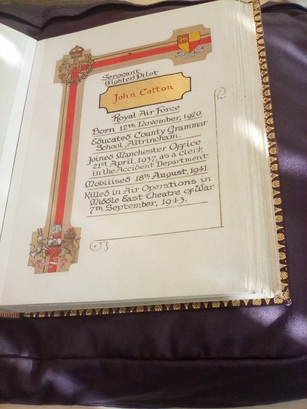 Sergeant
(Fighter) Pilot
John Cotton
Royal Air Force
Born 12th November, 1920.
Educated County Grammar
School, Altrincham.
Joined Manchester Office
21st April, 1937, as a clerk
in the Accident Department
Mobilised 18th August, 1941.
Killed in Air Operations in
Middle East Theatre of War
7th September, 1943.